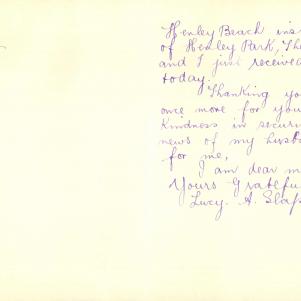 Henley Beach ins
of Henley Park, The
and I just received
today.
Thanking yo
once more for you
kindness in securi
news of my husb
for me,
I am dear m
Yours Grateful
Lucy. A. Slap